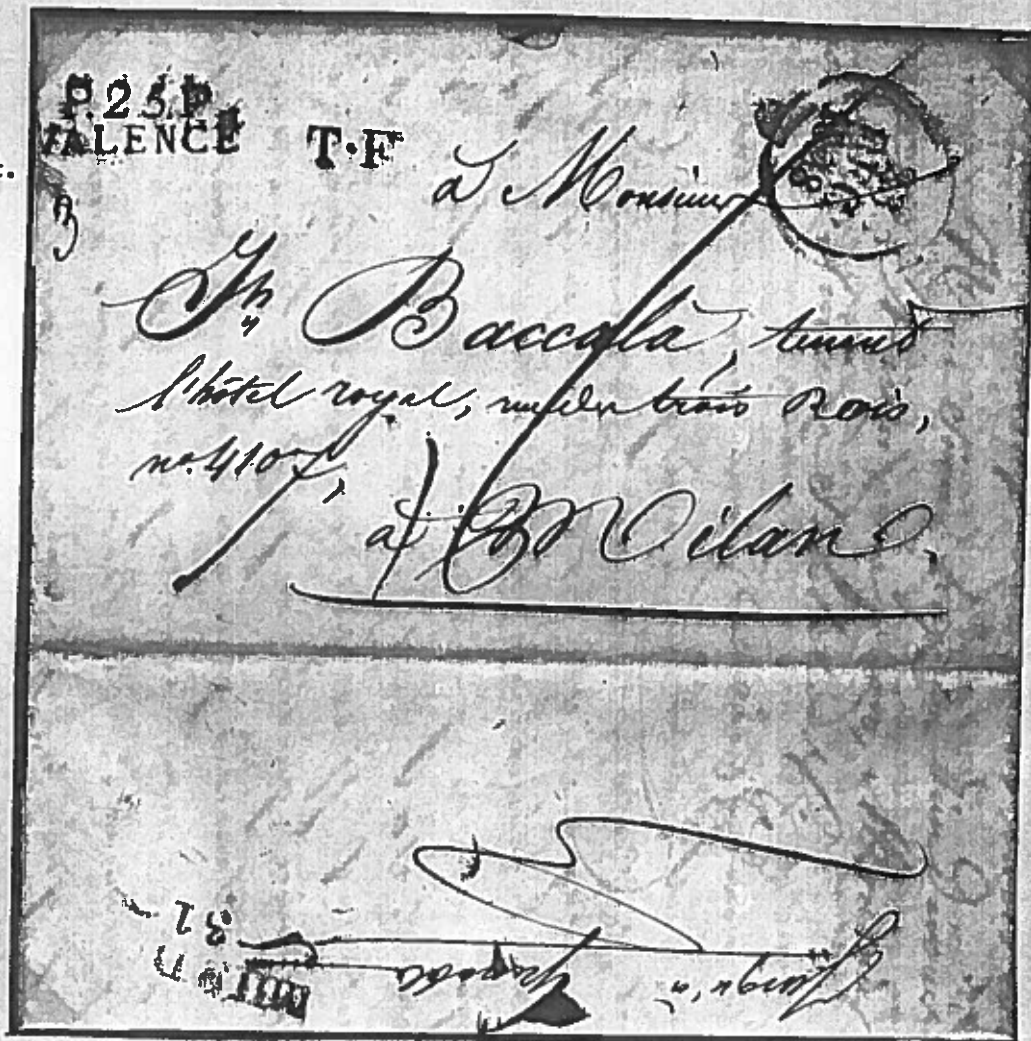 P.25.P.
VALENCE
T·F
à Monsieur
Jh Baccala, tenant
l'hôtel royal, rue des trois Rois,
no. 4107,
à Milan.
31